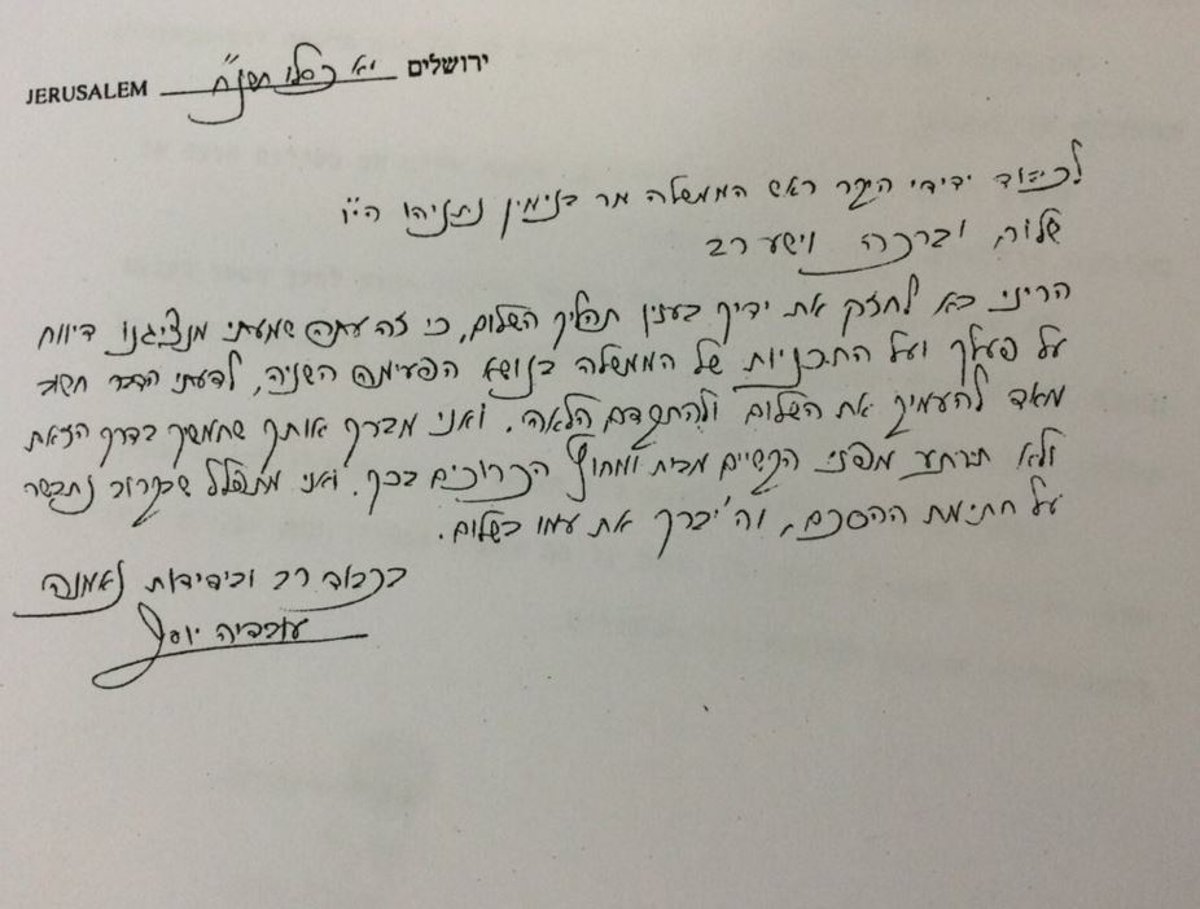 JERUSALEM יא כסלו תשנ"ח ירושלים
לכבוד ידידי היקר ראש הממשלה מר בנימין נתניהו הי"ו
שלום וברכה וישע רב
הריני בא לחזק את ידיך בענין תהליך השלום, כי זה עתה שמעתי מנציגנו דיווח
על פעלך ועל התכניות של הממשלה בנושא הפעימה השניה, לדעתי הדבר חשוב
מאד להעמיק את השלום ולהתקדם הלאה. ואני מברך אותך שתמשיך בדרך הזאת
ולא תירתע מפני הקשיים מבית ומחוץ הכרוכים בכך. ואני מתפלל שבקרוב נתבשר
על חתימת ההסכם, וה' יברך את עמו בשלום.
בכבוד רב ובידידות נאמנה
עובדיה יוסף